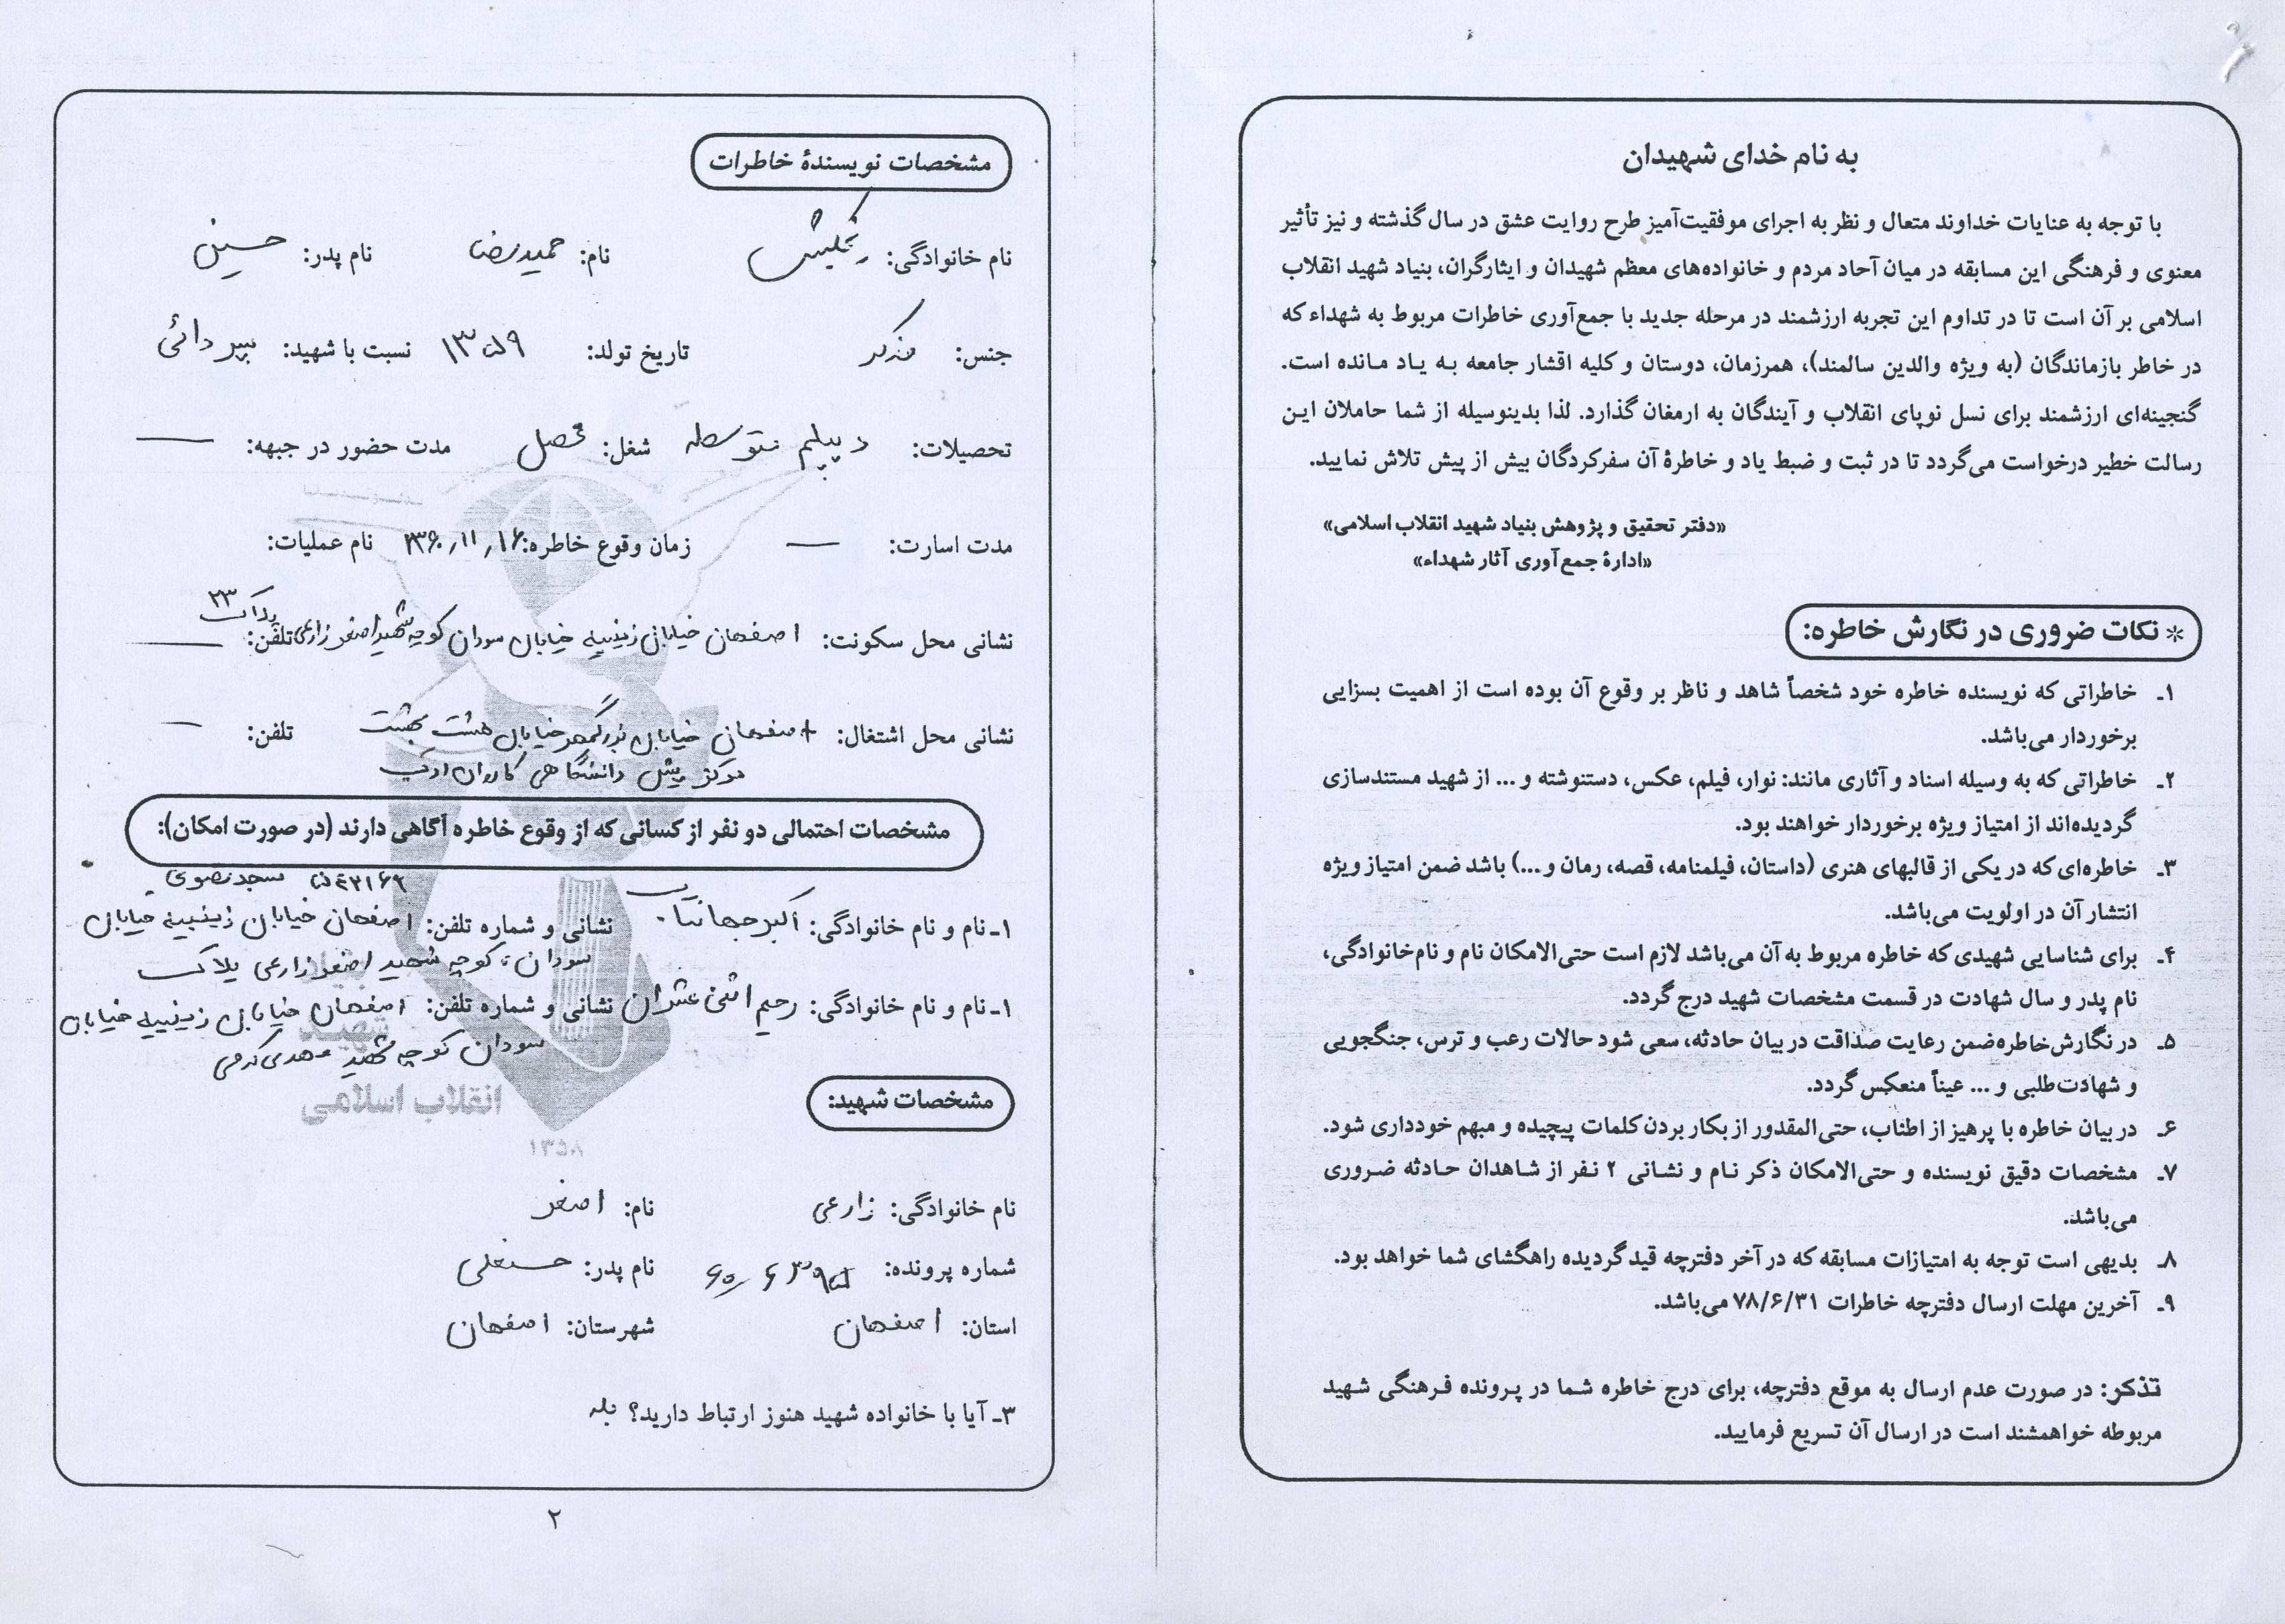 به نام خدای شهیدان
با توجه به عنایات خداوند متعال و نظر به اجرای موفقیت‌آمیز طرح روایت عشق در سال گذشته و نیز تأثیر
معنوی و فرهنگی این مسابقه در میان آحاد مردم و خانواده‌های معظم شهیدان و ایثارگران، بنیاد شهید انقلاب
اسلامی بر آن است تا در تداوم این تجربه ارزشمند در مرحله جدید با جمع‌آوری خاطرات مربوط به شهداء که
در خاطر بازماندگان (به ویژه والدین سالمند)، همرزمان، دوستان و کلیه اقشار جامعه به یاد مانده است.
گنجینه‌ای ارزشمند برای نسل نوپای انقلاب و آیندگان به ارمغان گذارد. لذا بدینوسیله از شما حاملان این
رسالت خطیر درخواست می‌گردد تا در ثبت و ضبط یاد و خاطرهٔ آن سفرکردگان بیش از پیش تلاش نمایید.
«دفتر تحقیق و پژوهش بنیاد شهید انقلاب اسلامی»
«ادارهٔ جمع‌آوری آثار شهداء»
* نکات ضروری در نگارش خاطره:
۱ـ خاطراتی که نویسنده خاطره خود شخصاً شاهد و ناظر بر وقوع آن بوده است از اهمیت بسزایی
برخوردار می‌باشد.
۲ـ خاطراتی که به وسیله اسناد و آثاری مانند: نوار، فیلم، عکس، دستنوشته و ... از شهید مستندسازی
گردیده‌اند از امتیاز ویژه برخوردار خواهند بود.
۳ـ خاطره‌ای که در یکی از قالبهای هنری (داستان، فیلمنامه، قصه، رمان و ...) باشد ضمن امتیاز ویژه
انتشار آن در اولویت می‌باشد.
۴ـ برای شناسایی شهیدی که خاطره مربوط به آن می‌باشد لازم است حتی‌الامکان نام و نام‌خانوادگی،
نام پدر و سال شهادت در قسمت مشخصات شهید درج گردد.
۵ـ در نگارش خاطره ضمن رعایت صداقت در بیان حادثه، سعی شود حالات رعب و ترس، جنگجویی
و شهادت‌طلبی و ... عیناً منعکس گردد.
۶ـ در بیان خاطره با پرهیز از اطناب، حتی‌المقدور از بکار بردن کلمات پیچیده و مبهم خودداری شود.
۷ـ مشخصات دقیق نویسنده و حتی‌الامکان ذکر نام و نشانی ۲ نفر از شاهدان حادثه ضروری
می‌باشد.
۸ـ بدیهی است توجه به امتیازات مسابقه که در آخر دفترچه قید گردیده راهگشای شما خواهد بود.
۹ـ آخرین مهلت ارسال دفترچه خاطرات ۷۸/۶/۳۱ می‌باشد.
تذکر: در صورت عدم ارسال به موقع دفترچه، برای درج خاطره شما در پرونده فرهنگی شهید
مربوطه خواهمشند است در ارسال آن تسریع فرمایید.
مشخصات نویسندهٔ خاطرات
نام خانوادگی: نام: حمیدرضا نام پدر: حسین
جنس: مذکر تاریخ تولد: ۱۳۵۹ نسبت با شهید: پسر دائی
تحصیلات: دیپلم متوسطه شغل: محصل مدت حضور در جبهه: —
مدت اسارت: — زمان وقوع خاطره: ۱۳۶۰/۱۱/۱۶ نام عملیات:
نشانی محل سکونت: اصفهان خیابان زینبیه خیابان سودان کوچه شهید اصغر زارعی پلاک ۲۳ تلفن: —
نشانی محل اشتغال: اصفهان خیابان بزرگمهر خیابان هشت بهشت تلفن: —
مرکز پیش دانشگاهی کاروان ادب
مشخصات احتمالی دو نفر از کسانی که از وقوع خاطره آگاهی دارند (در صورت امکان):
۱ـ نام و نام خانوادگی: اکبر جهانتاب نشانی و شماره تلفن: اصفهان خیابان زینبیه خیابان
سودان کوچه شهید اصغر زارعی پلاک
۱ـ نام و نام خانوادگی: رحیم اثنی عشران نشانی و شماره تلفن: اصفهان خیابان زینبیه خیابان
سودان کوچه شهید مهدی کرمی
شهید
انقلاب اسلامی
۱۳۵۸
مشخصات شهید:
نام خانوادگی: زارعی نام: اصغر
شماره پرونده: نام پدر: حسنعلی
استان: اصفهان شهرستان: اصفهان
۳ـ آیا با خانواده شهید هنوز ارتباط دارید؟ بله
۲